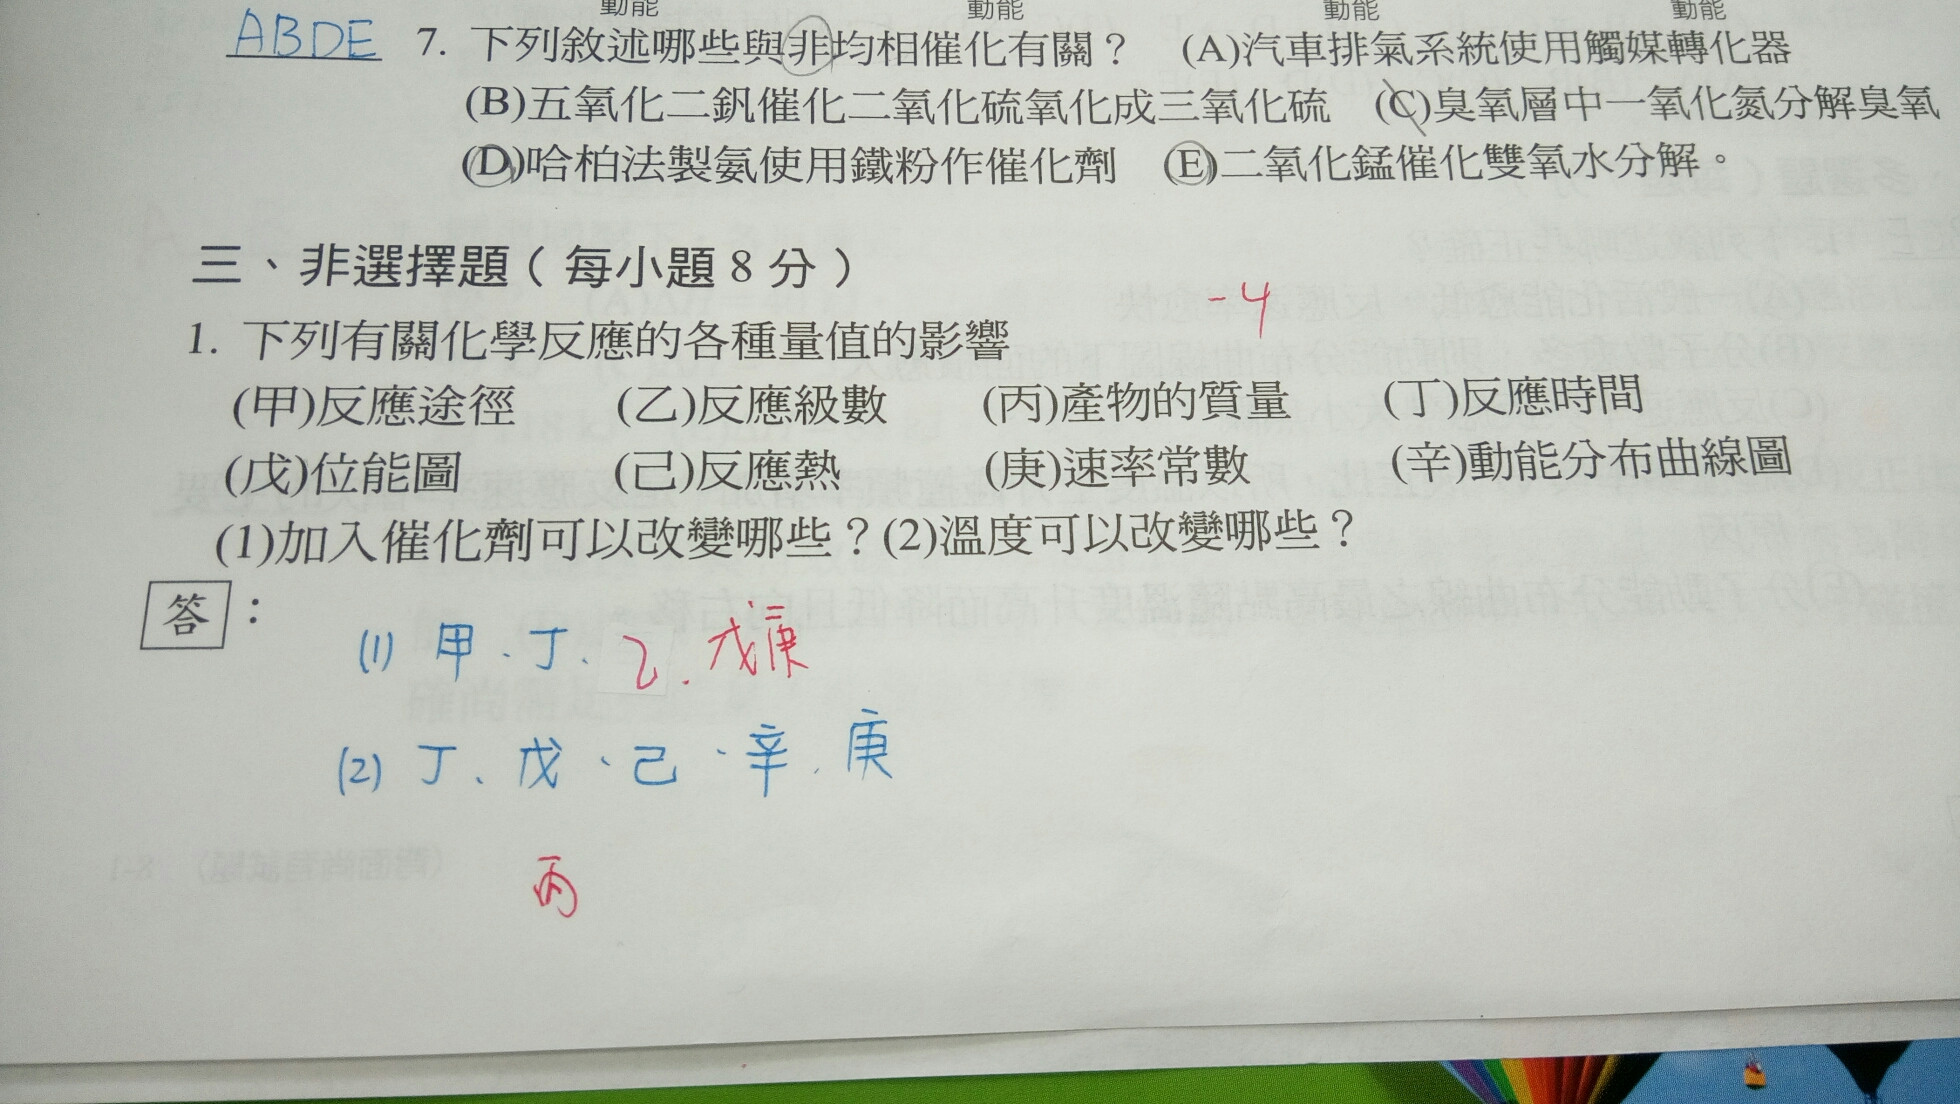 動能 動能 動能 動能
ABDE 7. 下列敘述哪些與非均相催化有關？ (A)汽車排氣系統使用觸媒轉化器
(B)五氧化二釩催化二氧化硫氧化成三氧化硫 (C)臭氧層中一氧化氮分解臭氧
(D)哈柏法製氨使用鐵粉作催化劑 (E)二氧化錳催化雙氧水分解。
三、非選擇題（每小題8分）
-4
1. 下列有關化學反應的各種量值的影響
(甲)反應途徑 (乙)反應級數 (丙)產物的質量 (丁)反應時間
(戊)位能圖 (己)反應熱 (庚)速率常數 (辛)動能分布曲線圖
(1)加入催化劑可以改變哪些？(2)溫度可以改變哪些？
答：
(1) 甲、丁、乙、戊、庚
(2) 丁、戊、己、辛、庚
丙